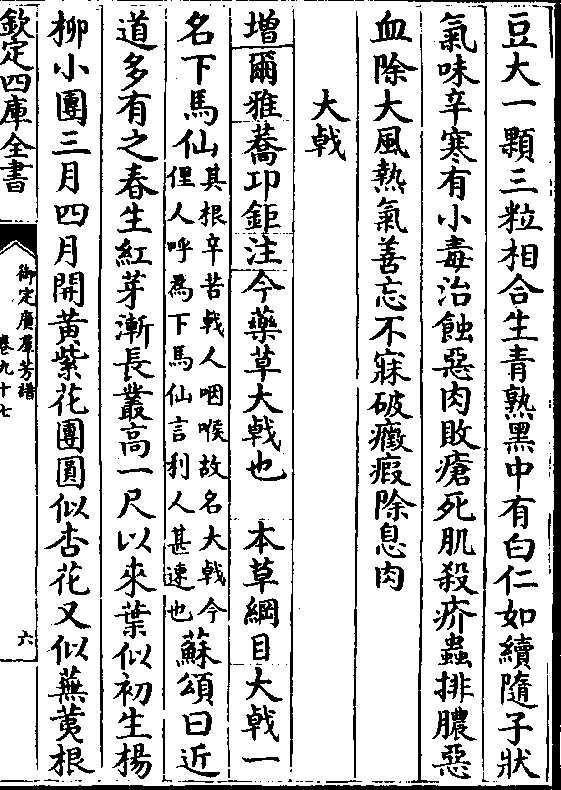 豆大一顆三粒相合生青熟黑中有白仁如續隨子狀
氣味辛寒有小毒治蝕惡肉敗瘡死肌殺疥蟲排膿惡
血除大風熱氣善忘不寐破癥瘕除息肉
大戟
增爾雅蕎卭鉅注今藥草大戟也　本草綱目大戟一
名下馬仙其根辛苦戟人咽喉故名大戟今俚人呼為下馬仙言利人甚速也蘇頌曰近
道多有之春生紅芽漸長叢高一尺以來葉似初生楊
柳小團三月四月開黃紫花團圓似杏花又似蕪荑根
欽定四庫全書
御定廣羣芳譜
卷九十七
六